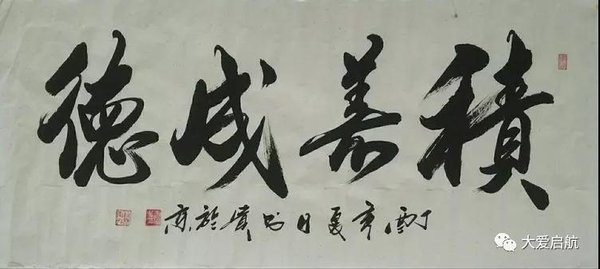 積善成德
丁酉年夏日
大爱启航